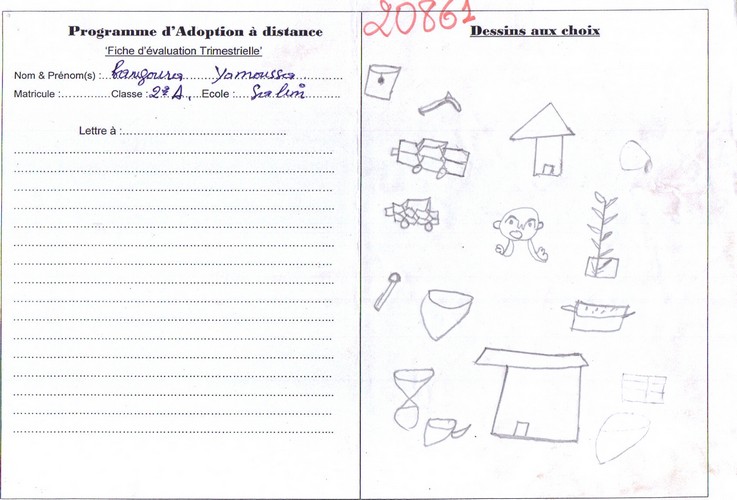 20861
Programme d'Adoption à distance
'Fiche d'évaluation Trimestrielle'
Nom & Prénom(s) : Bangoura Yamoussa
Matricule : Classe : 2è A, Ecole : Salim
Lettre à :
Dessins aux choix